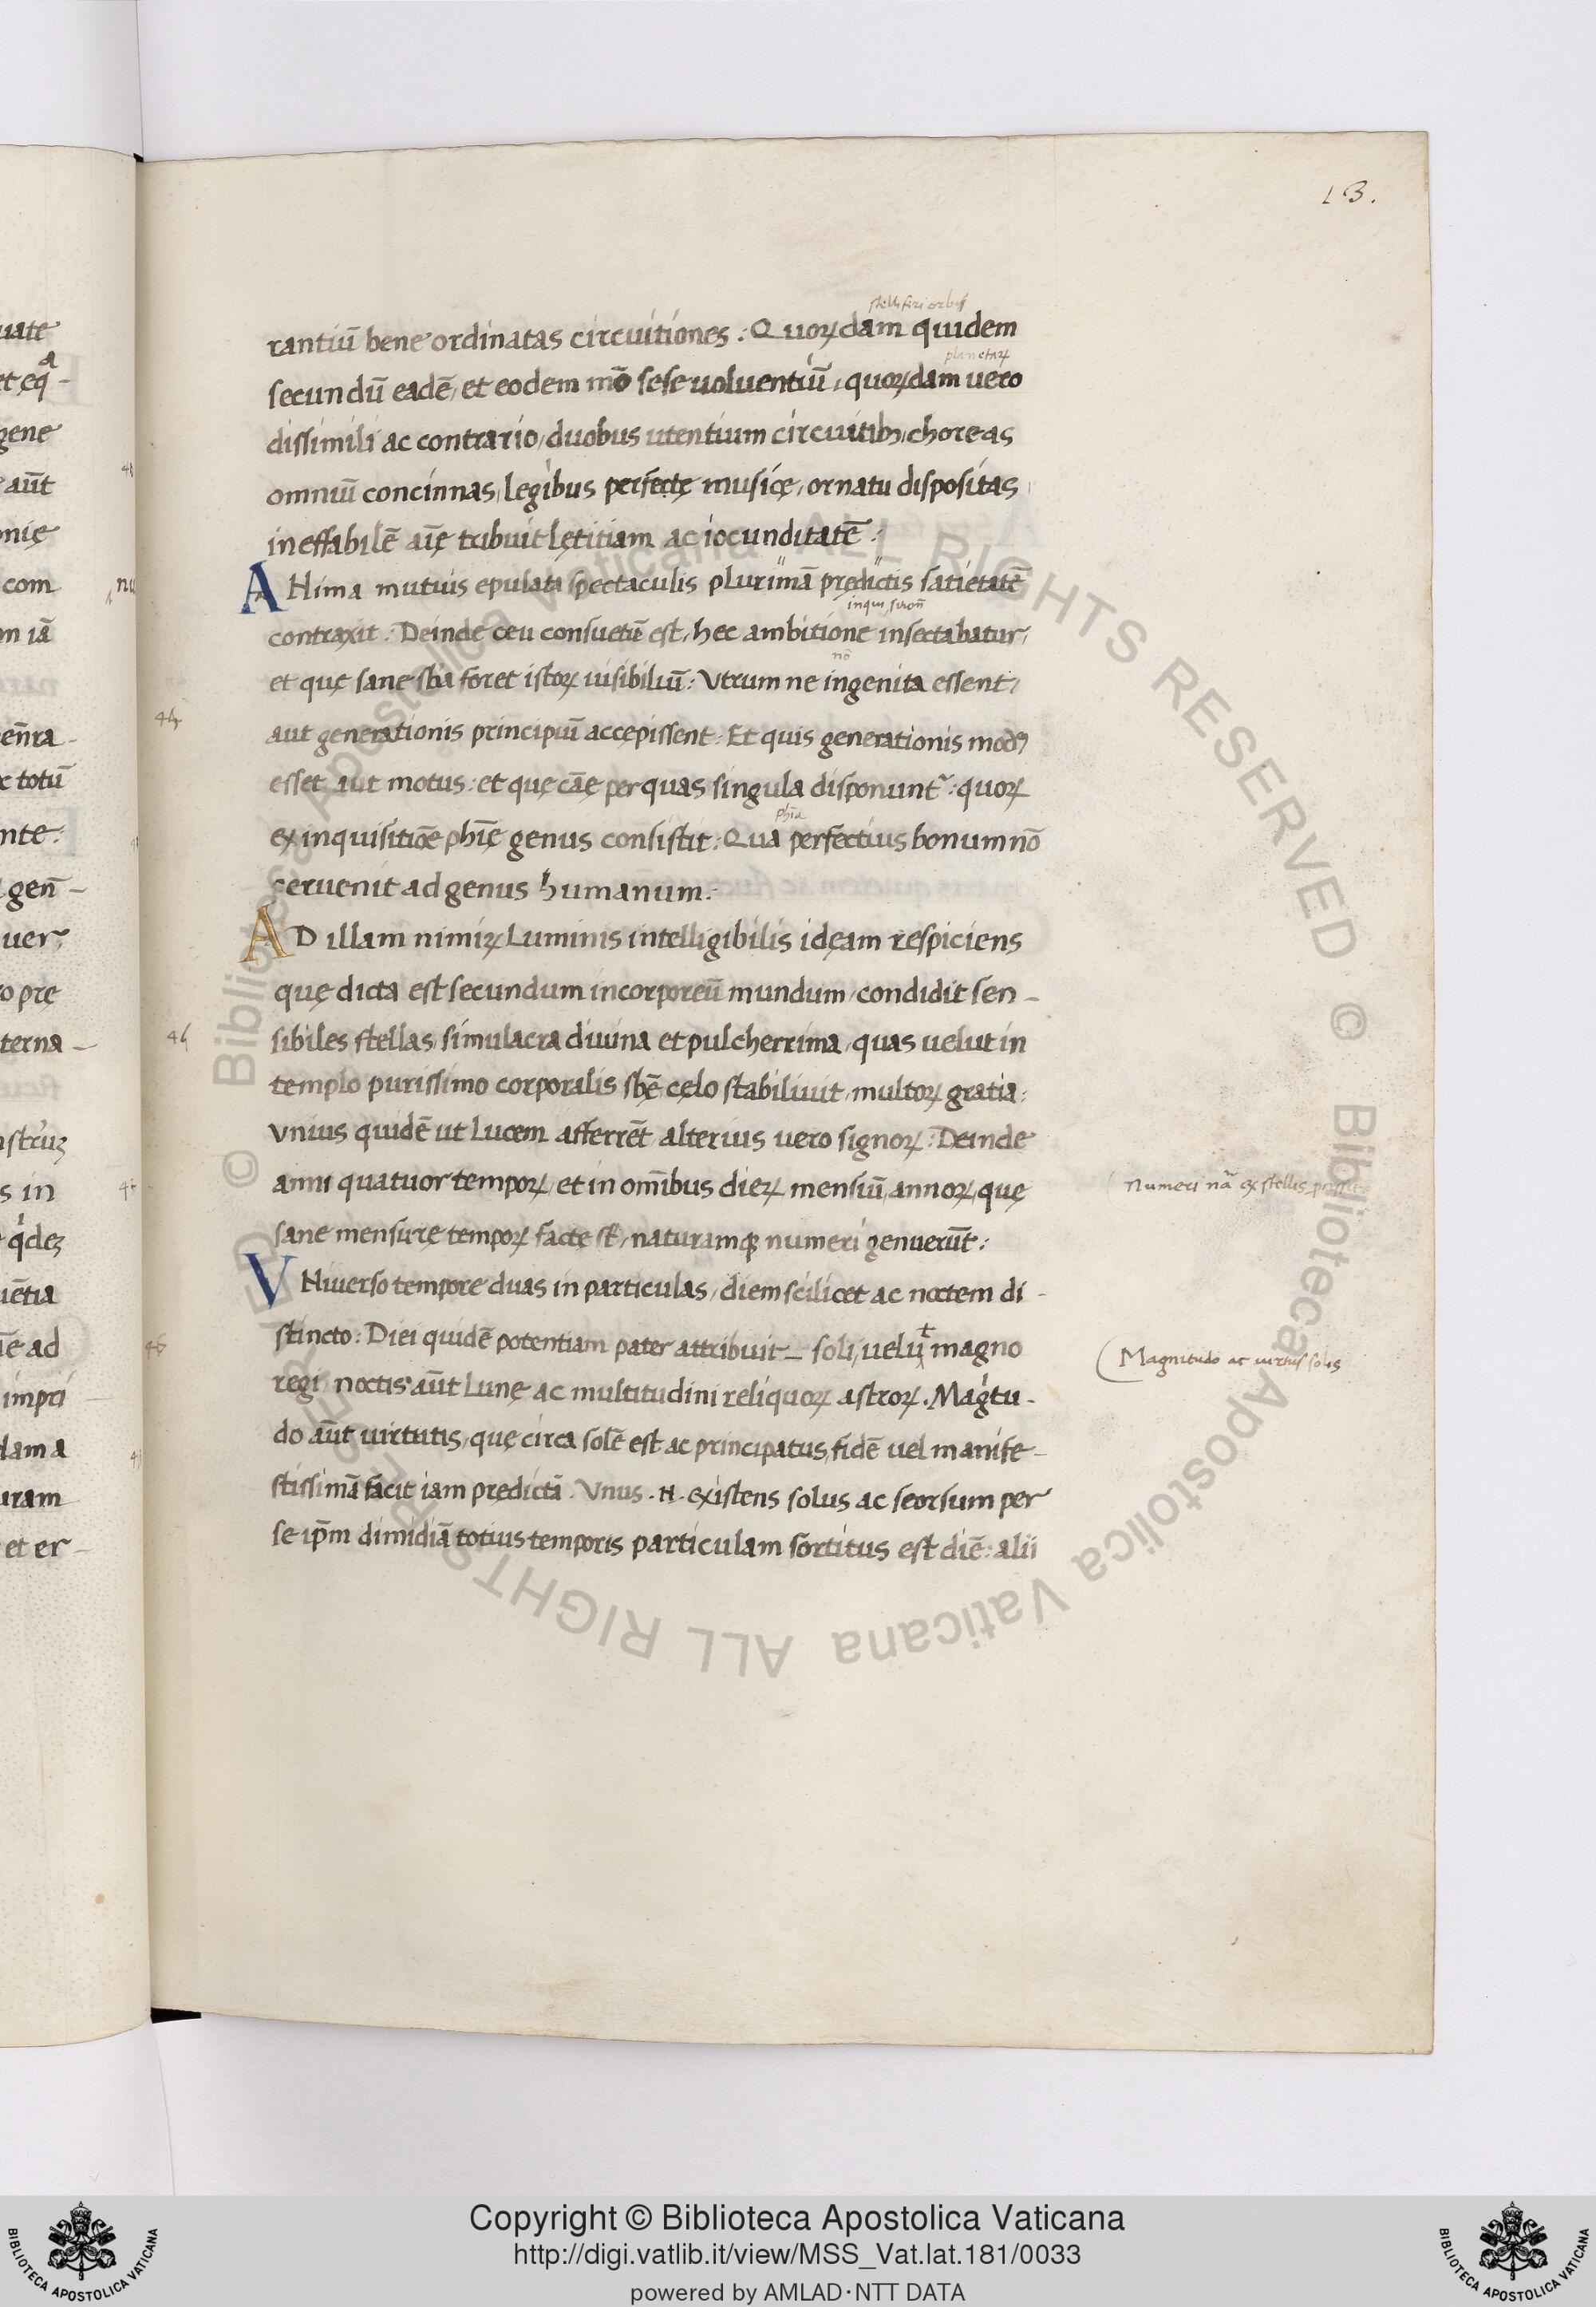 13.
stelliferi orbis
rantiū bene ordinatas circuitiones : Quoꝝdam quidem
planetaꝝ
secundū eadē, et eodem mō sese uoluentiū, quoꝝdam uero
dissimili ac contrario, duobus utentium circuitibꝫ, choreas
omniū concinnas, legibus perfectę musicę, ornatu dispositas
ineffabilē aīę tribuit lętitiam ac iocunditatē :
ANima mutuis epulata spectaculis plurimā prędictis satietatē
contraxit : Deinde ceu consuetū est, hec ambitione insectabatur,
et quę sane sb̄a foret istoꝝ uisibiliū : Vtrum ne ingenita essent,
nō
aut generationis principiū accępissent : Et quis generationis modꝰ
esset aut motus : et quę cāę per quas singula disponunt᷑ : quoꝝ
phīa
ex inquisitiōe phīę genus consistit : Qua perfectius bonum nō
peruenit ad genus humanum :
AD illam nimiꝝ Luminis intelligibilis idęam respiciens
quę dicta est secundum incorporeū mundum, condidit sen-
sibiles stellas, simulacra diuina et pulcherrima, quas uelut in
templo purissimo corporalis sbē cęlo stabiliuit, multoꝝ gratia :
Vnius quidē ut Lucem afferrēt, alterius uero signoꝝ : Deinde
anni quatuor tempoꝝ, et in om̄ibus dieꝝ mensiū, annoꝝ, quę
Numeri nā ex stellis
sane mensurę tempoꝝ factę st̄, naturamqꝫ numeri genuerūt :
VNiuerso tempore duas in particulas, diem scilicet ac noctem di-
stincto : Diei quidē potentiam pater attribuit soli, uelut magno
Magnitudo ac uirtus solis
regi, noctis aūt Lunę ac multitudini reliquoꝝ astroꝝ. Magͥtu-
do aūt uirtutis, quę circa solē est ac principatus, fidē uel manife-
stissimā facit iam prędictā. Vnus .N. existens solus ac seorsum per
se ip̄m dimidiā totius temporis particulam sortitus est diē : alii
Copyright © Biblioteca Apostolica Vaticana
http://digi.vatlib.it/view/MSS_Vat.lat.181/0033
powered by AMLAD·NTT DATA